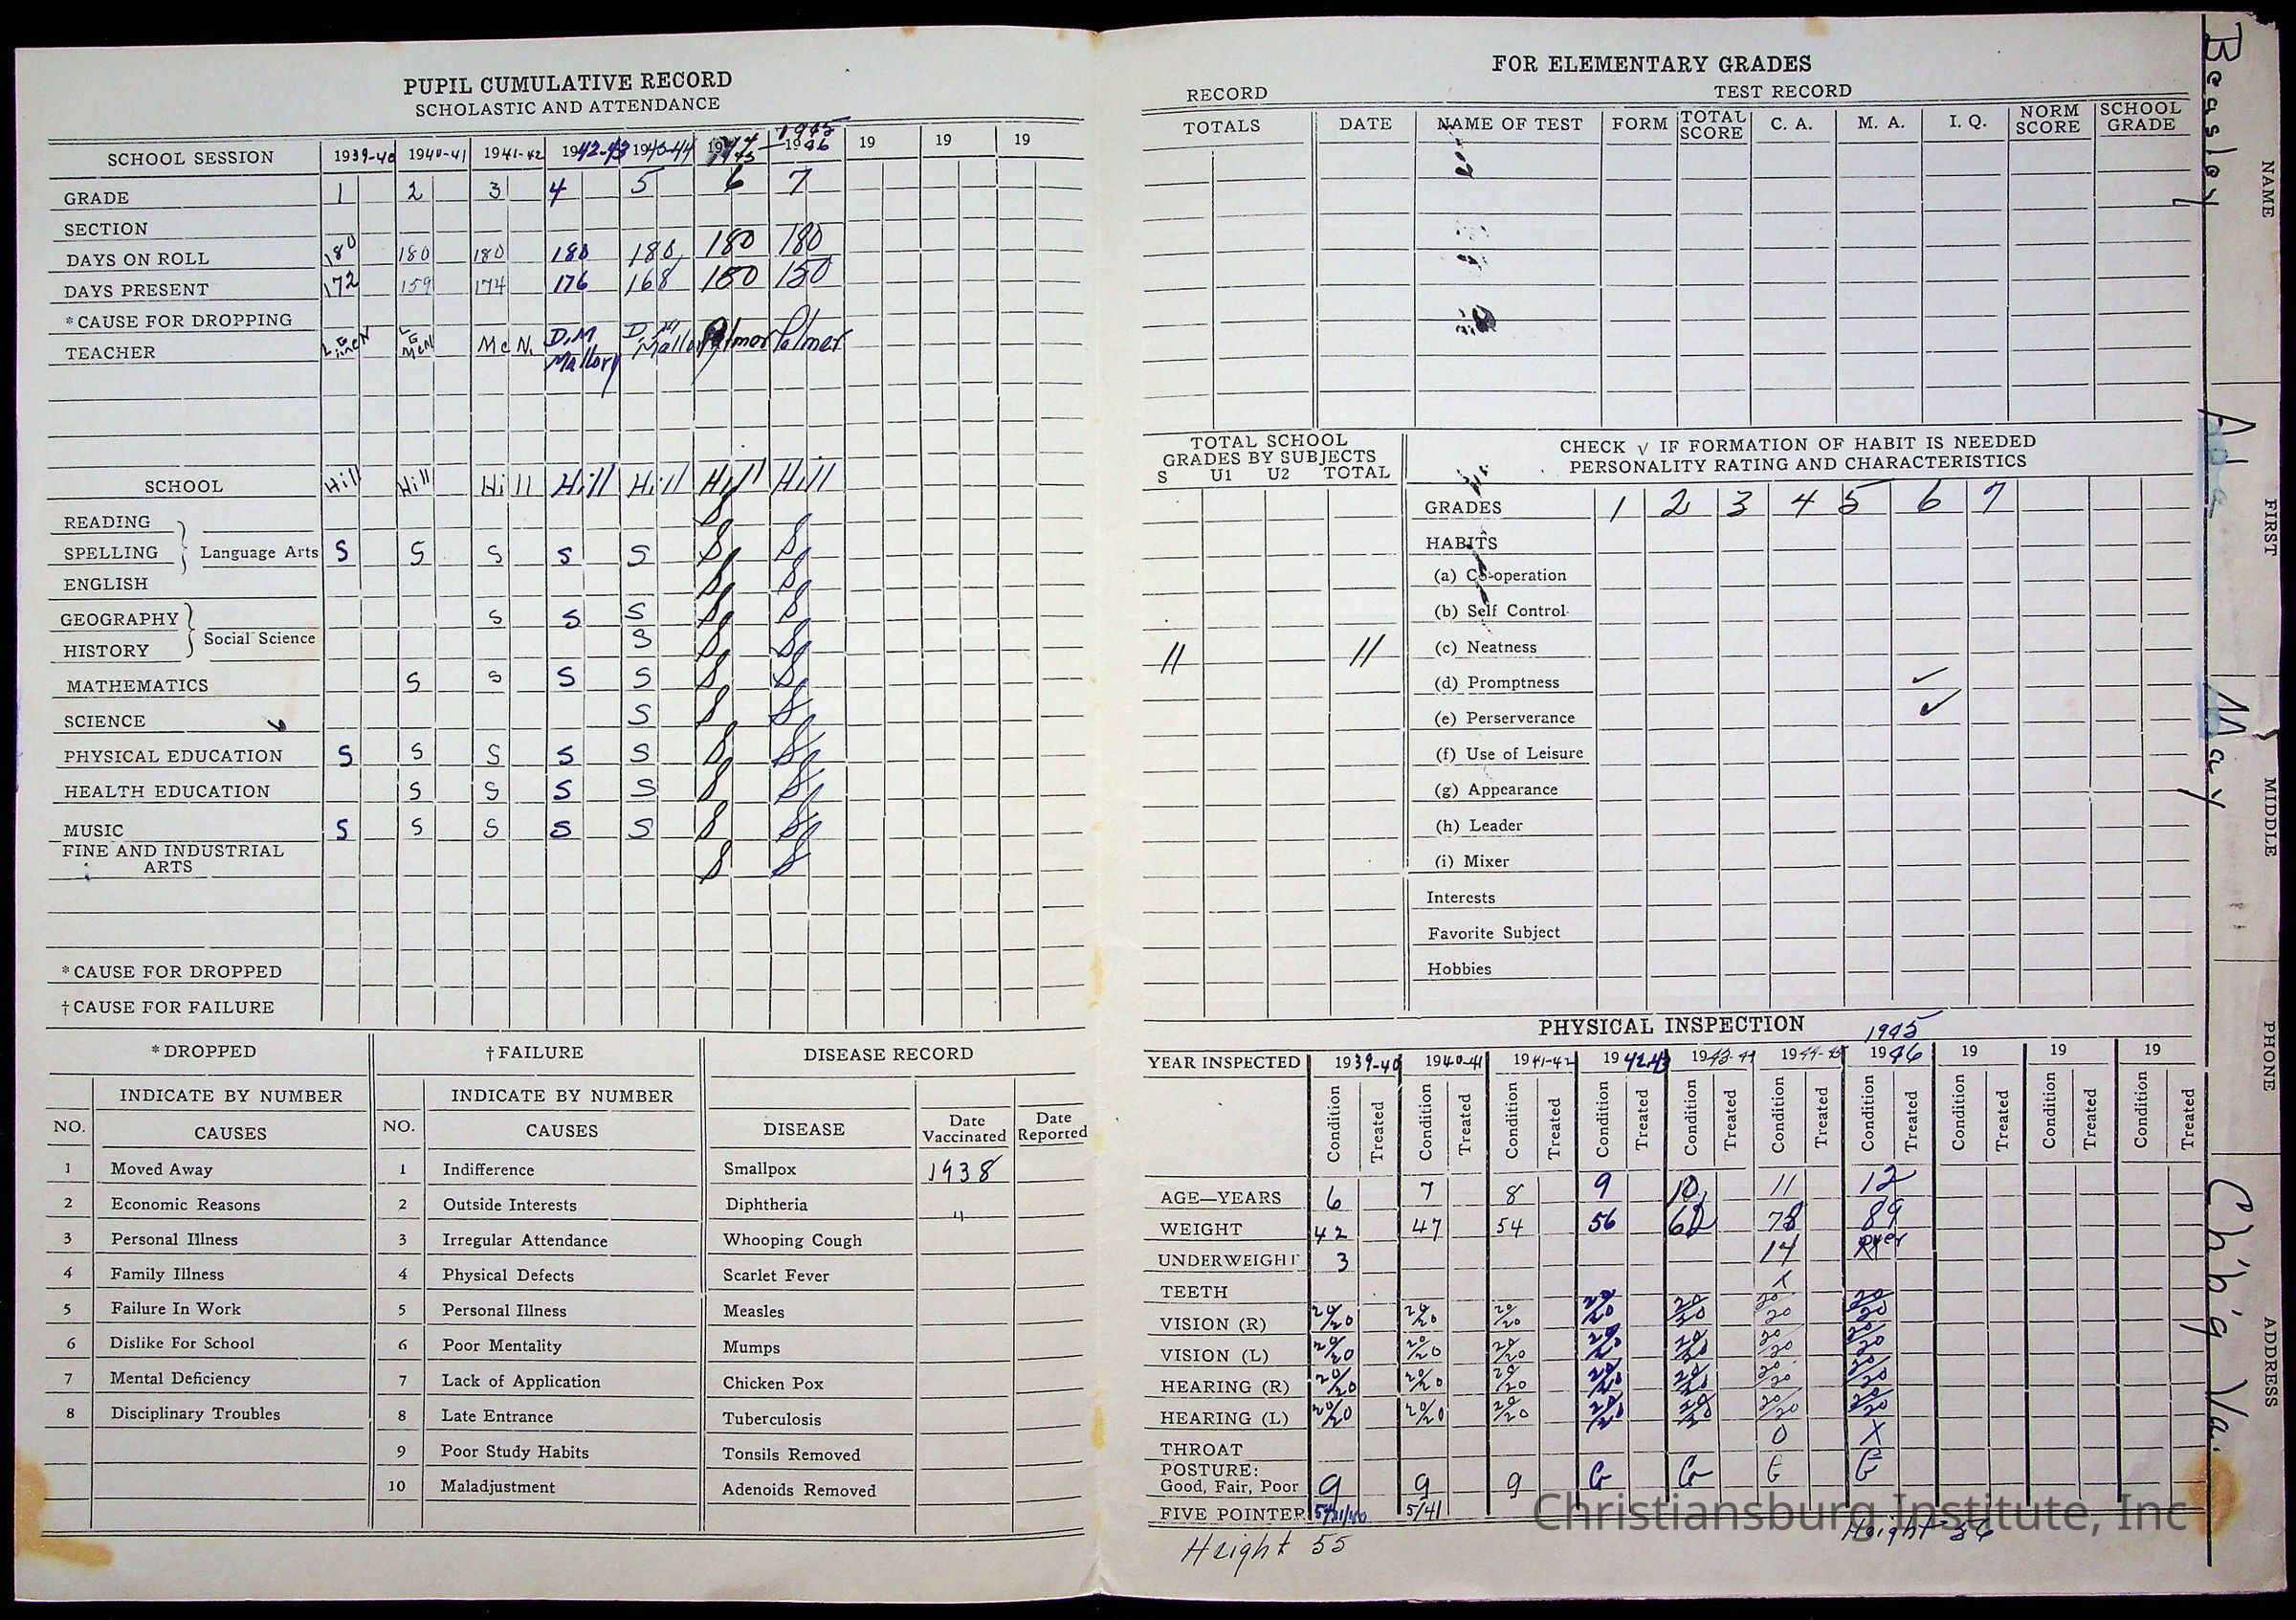 PUPIL CUMULATIVE RECORD
SCHOLASTIC AND ATTENDANCE
SCHOOL SESSION 1939-40 1940-41 1941-42 1942-43 1943-44 1944 1945 1945 1946 19 19 19
GRADE 1 2 3 4 5 6 7
SECTION
DAYS ON ROLL 180 180 180 180 180 180 180
DAYS PRESENT 172 159 174 176 168 180 150
*CAUSE FOR DROPPING
TEACHER McN. D.M Mallory D.M Mallory Palmer Palmer
SCHOOL Hill Hill Hill Hill Hill Hill Hill
READING S
SPELLING Language Arts S S S S S S S
ENGLISH S S
GEOGRAPHY S S S S S
HISTORY Social Science S S S
MATHEMATICS S S S S S S
SCIENCE S S S
PHYSICAL EDUCATION S S S S S S S
HEALTH EDUCATION S S S S S S
MUSIC S S S S S S S
FINE AND INDUSTRIAL
ARTS S S
*CAUSE FOR DROPPED
†CAUSE FOR FAILURE
*DROPPED †FAILURE DISEASE RECORD
INDICATE BY NUMBER INDICATE BY NUMBER
NO. CAUSES NO. CAUSES DISEASE Date Vaccinated Date Reported
1 Moved Away 1 Indifference Smallpox 1938
2 Economic Reasons 2 Outside Interests Diphtheria "
3 Personal Illness 3 Irregular Attendance Whooping Cough
4 Family Illness 4 Physical Defects Scarlet Fever
5 Failure In Work 5 Personal Illness Measles
6 Dislike For School 6 Poor Mentality Mumps
7 Mental Deficiency 7 Lack of Application Chicken Pox
8 Disciplinary Troubles 8 Late Entrance Tuberculosis
9 Poor Study Habits Tonsils Removed
10 Maladjustment Adenoids Removed
FOR ELEMENTARY GRADES
RECORD TEST RECORD
TOTALS DATE NAME OF TEST FORM TOTAL SCORE C. A. M. A. I. Q. NORM SCORE SCHOOL GRADE
TOTAL SCHOOL
GRADES BY SUBJECTS
S U1 U2 TOTAL
11 11
CHECK √ IF FORMATION OF HABIT IS NEEDED
PERSONALITY RATING AND CHARACTERISTICS
GRADES 1 2 3 4 5 6 7
HABITS
(a) Co-operation
(b) Self Control
(c) Neatness
(d) Promptness ✓
(e) Perserverance ✓
(f) Use of Leisure
(g) Appearance
(h) Leader
(i) Mixer
Interests
Favorite Subject
Hobbies
PHYSICAL INSPECTION
YEAR INSPECTED 1939-40 1940-41 1941-42 1942-43 1943-44 1944-45 1945 1946 19 19 19
Condition Treated Condition Treated Condition Treated Condition Treated Condition Treated Condition Treated Condition Treated Condition Treated Condition Treated Condition Treated
AGE—YEARS 6 7 8 9 10 11 12
WEIGHT 42 47 54 56 62 78 89
UNDERWEIGHT 3 14 over
TEETH x
VISION (R) 20/20 20/20 20/20 20/20 20/20 20/20 20/20
VISION (L) 20/20 20/20 20/20 20/20 20/20 20/20 20/20
HEARING (R) 20/20 20/20 20/20 20/20 20/20 20/20 20/20
HEARING (L) 20/20 20/20 20/20 20/20 20/20 20/20 20/20
THROAT 0 X
POSTURE:
Good, Fair, Poor g g g G G G G
FIVE POINTER 5/41
Height 55
Height 56
Christiansburg Institute, Inc
NAME Beasley
FIRST
MIDDLE May
PHONE
ADDRESS Ch'b'g Va.